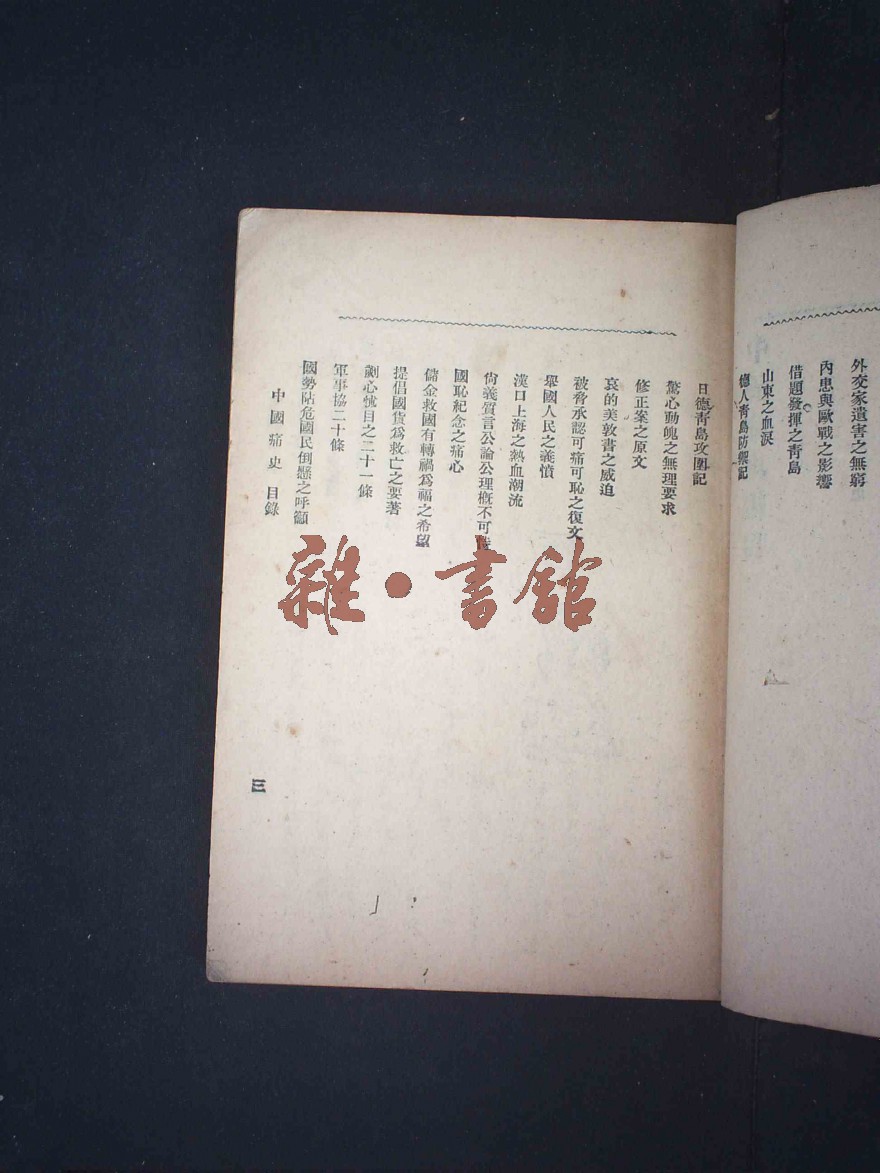 外交家遺害之無窮
內患與歐戰之影響
借題發揮之靑島
山東之血淚
德人靑島防禦記
日德靑島攻圍記
驚心動魄之無理要求
修正案之原文
哀的美敦書之威迫
被脅承認可痛可恥之復文
舉國人民之義憤
漢口上海之熱血潮流
尙義質言公論公理槪不可恃
國恥紀念之痛心
儲金救國有轉禍爲福之希望
提倡國貨爲救亡之要著
劌心怵目之二十一條
軍事協二十條
國勢阽危國民倒懸之呼籲
中國痛史 目錄
三
雜·書館